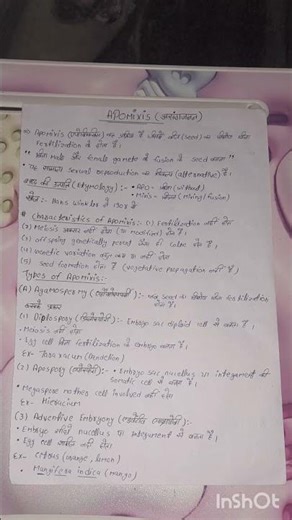 APOMIXIS (असंगजनन)
⇒ Apomixis (एपोमिक्सिस) वह प्रक्रिया है जिसमें बीज (seed) का निर्माण बिना
Fertilization के होता है।
" बिना male और female gamete के fusion के seed बनना "
• यह sexual reproduction का विकल्प (alternative) है।
शब्द की उत्पत्ति (Etymology) :- • Apo - बिना (without)
• Mixis - मिश्रण (mixing/fusion)
खोज - Hans winkler ने 1908 में
# Characteristics of Apomixis: (1) Fertilization नहीं होता
(2) Meiosis नहीं होता (या modified) होता है।
(3) offspring genetically parent जैसा ही clone होता है।
(4) Genetic variation बहुत कम या नहीं होता
(5) Seed formation होता है (vegetative propagation नहीं है)
Types of Apomixis:-
(A) Agamospermy :- जब seed का निर्माण बिना fertilization
इसके प्रकार
(1) Diplospory :- Embryo sac diploid cell से बनता है।
- Meiosis नहीं होता
- Egg cell बिना fertilization के embryo बनता है।
Ex- Taraxacum (Dandelion)
(2) Apospory :- • Embryo sac nucellus या integument की
somatic cell से बनता है।
• Megaspore mother cell involved नहीं होता
Ex- Hieracium
(3) Adventive Embryony :-
• Embryo सीधे nucellus या integument से बनता है।
• Egg cell नहीं होता
Ex- citrus (orange, lemon)
• Mangifera indica (mango)
InShOt